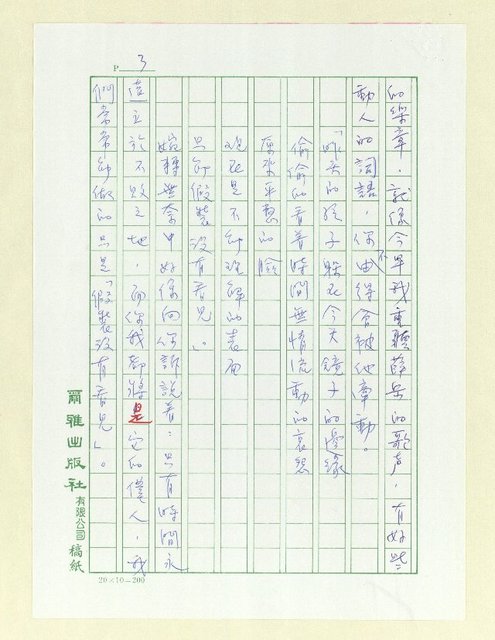 P 3
的樂章，就像今早我重聽薛岳的歌声，有好些
動人的詞語，你由不得會被他牽動。
「昨天的孩子躲在今天鏡子的邊緣
偷偷的看着時間無情流動的哀怨
原來平整的臉
現在是不能理解的表面
只能假裝没有看見」
婉轉無奈中好像向你訴說着：只有時間永
遠立於不敗之地，而你我都將是它的僕人，我
們常常能做的只是「假裝没有看見」。
20×10＝200
爾雅出版社有限公司稿紙